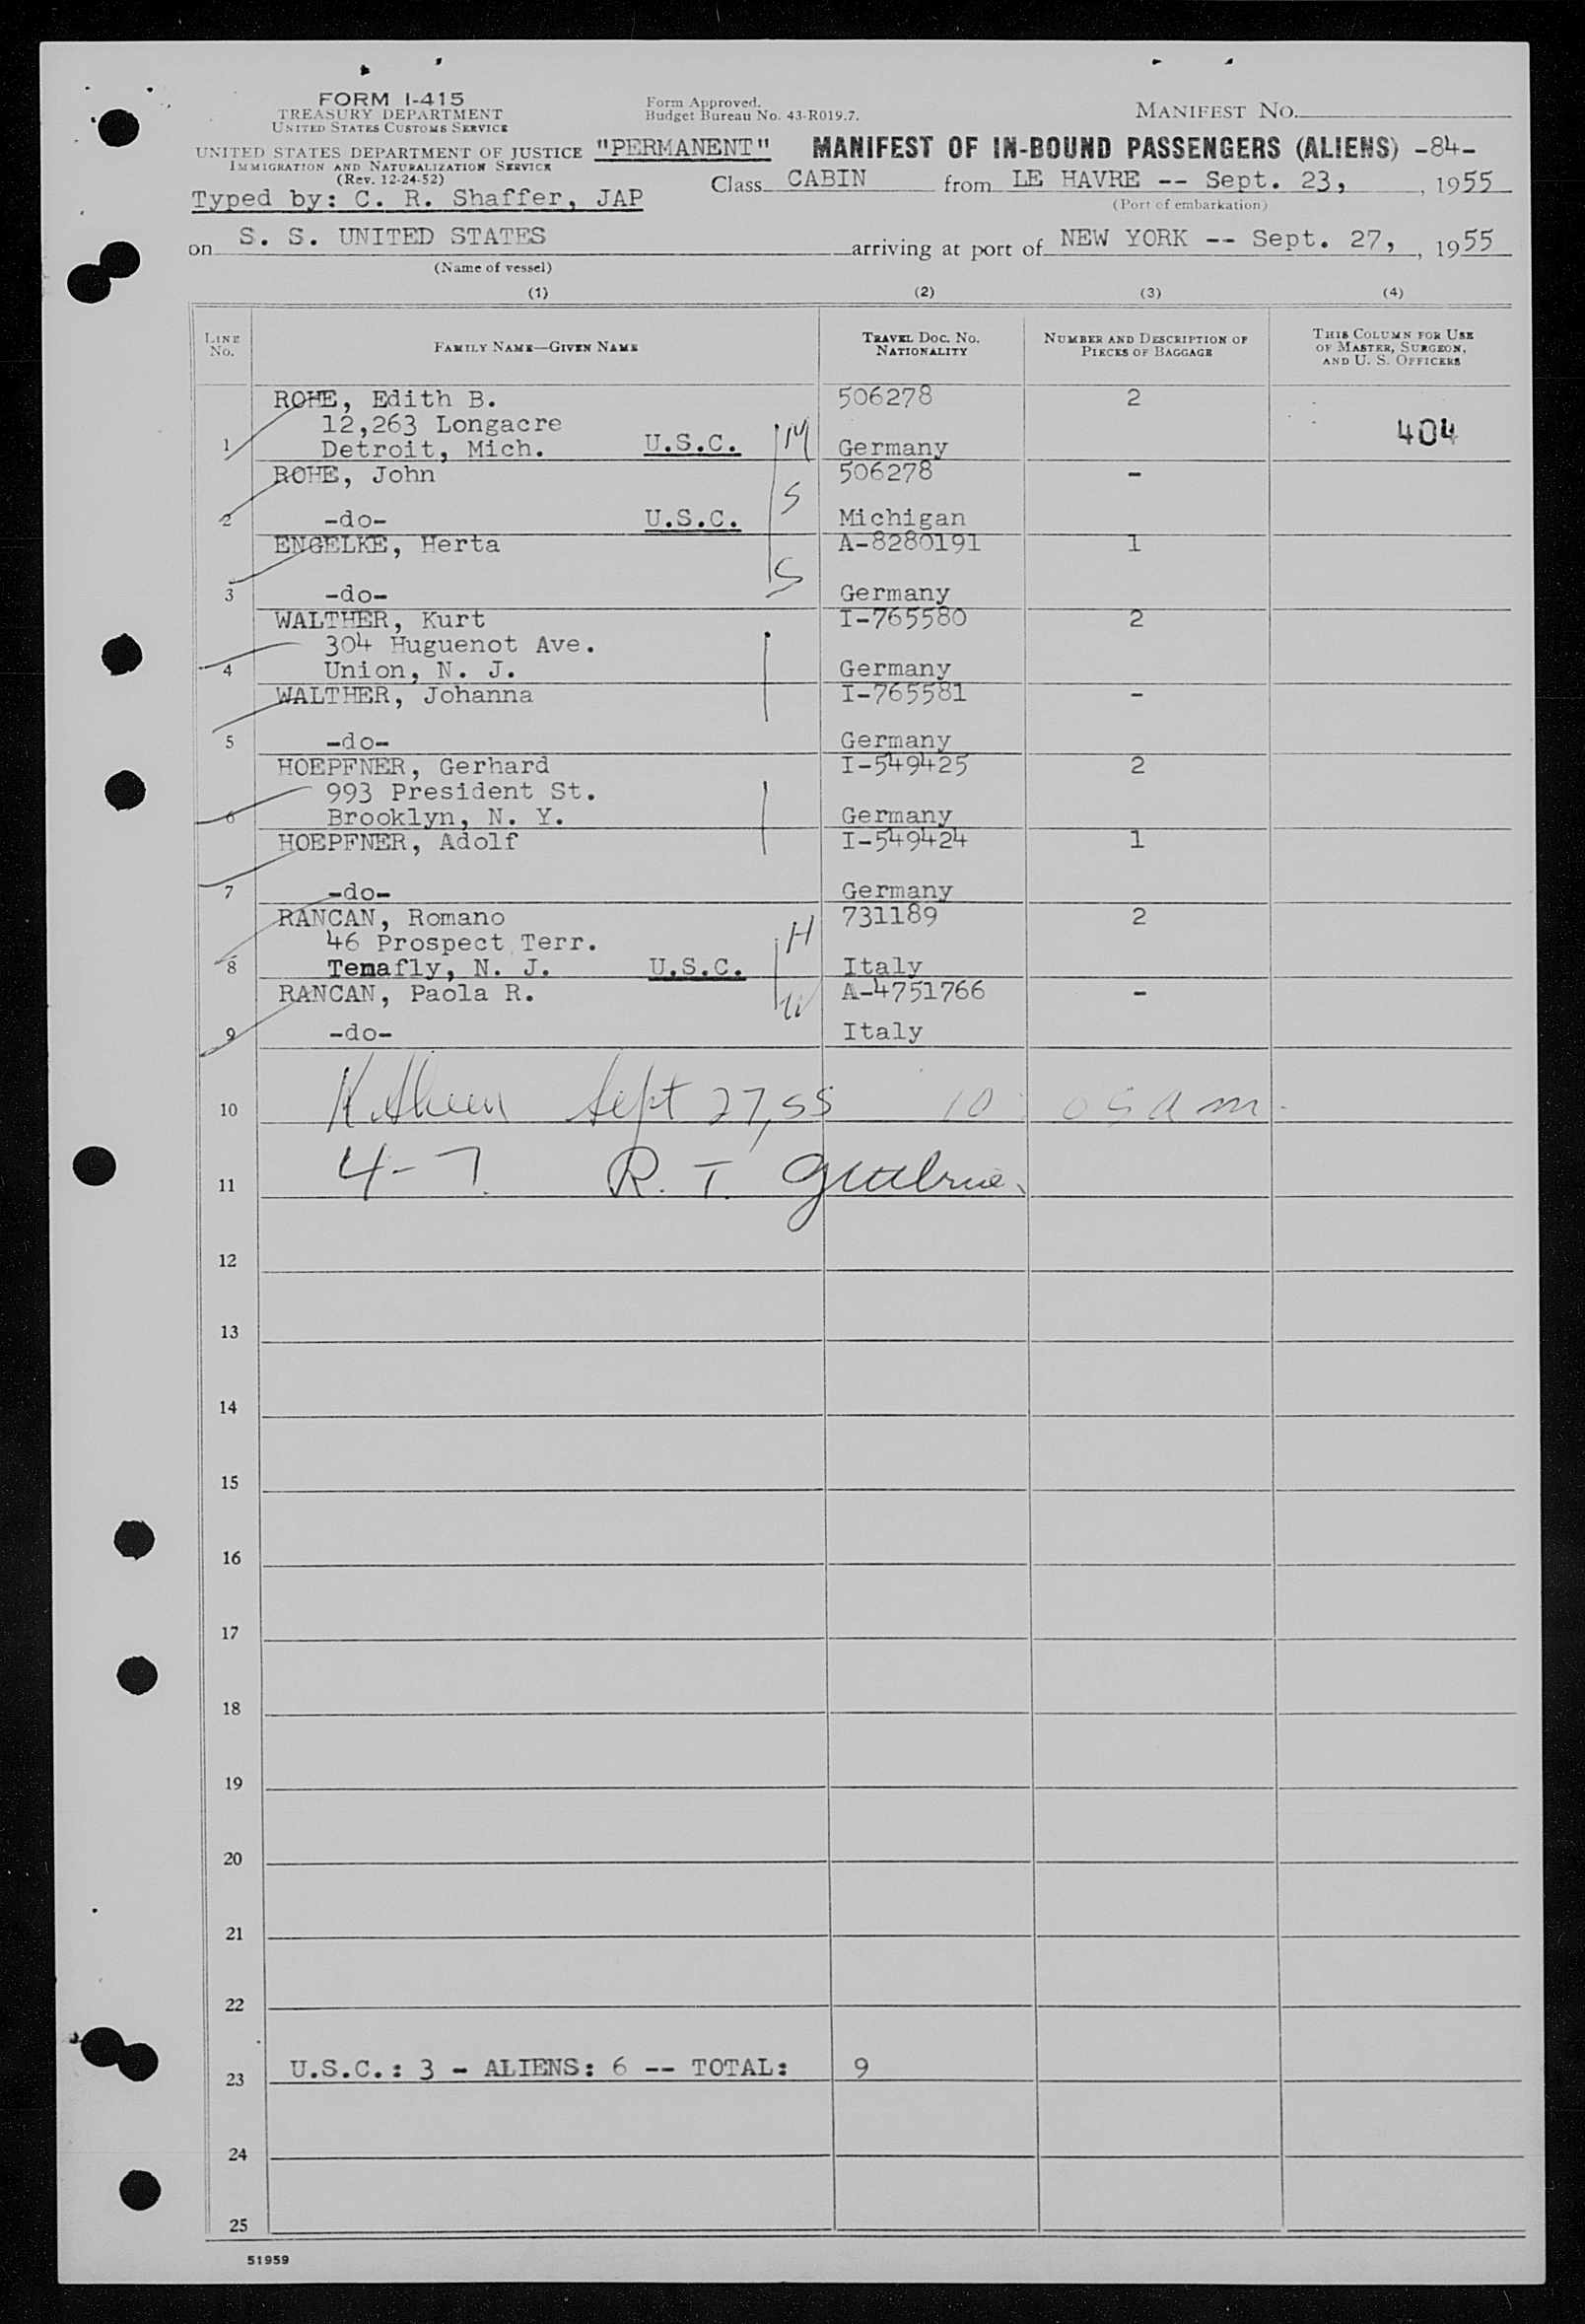 FORM I-415
TREASURY DEPARTMENT
UNITED STATES CUSTOMS SERVICE
UNITED STATES DEPARTMENT OF JUSTICE
IMMIGRATION AND NATURALIZATION SERVICE
(Rev. 12-24-52)
Typed by: C. R. Shaffer, JAP
Form Approved.
Budget Bureau No. 43-R019.7.
MANIFEST NO.
"PERMANENT" MANIFEST OF IN-BOUND PASSENGERS (ALIENS) -84-
Class CABIN from LE HAVRE -- Sept. 23, , 1955
(Port of embarkation)
on S. S. UNITED STATES arriving at port of NEW YORK -- Sept. 27, , 1955
(Name of vessel)
(1) (2) (3) (4)
LINE No. FAMILY NAME—GIVEN NAME TRAVEL DOC. NO. NATIONALITY NUMBER AND DESCRIPTION OF PIECES OF BAGGAGE THIS COLUMN FOR USE OF MASTER, SURGEON, AND U. S. OFFICERS
ROHE, Edith B. 506278 2
12,263 Longacre 404
1 Detroit, Mich. U.S.C. M Germany
ROHE, John 506278 -
S
2 -do- U.S.C. Michigan
ENGELKE, Herta A-8280191 1
S
3 -do- Germany
WALTHER, Kurt I-765580 2
304 Huguenot Ave.
4 Union, N. J. Germany
WALTHER, Johanna I-765581 -
5 -do- Germany
HOEPFNER, Gerhard I-549425 2
993 President St.
6 Brooklyn, N. Y. Germany
HOEPFNER, Adolf I-549424 1
7 -do- Germany
RANCAN, Romano 731189 2
46 Prospect Terr. H
8 Tenafly, N. J. U.S.C. Italy
RANCAN, Paola R. W A-4751766 -
9 -do- Italy
10 Sept 27, 55 10:05 am.
11 4-7. R. T.
12
13
14
15
16
17
18
19
20
21
22
23 U.S.C.: 3 - ALIENS: 6 -- TOTAL: 9
24
25
51959